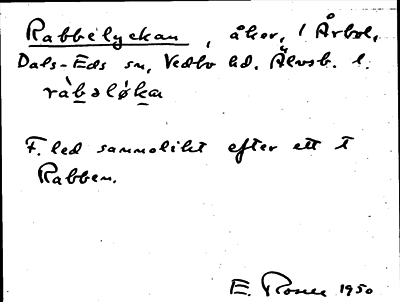 Rabbelyckan, åker, 1 Årbol,
Dals-Eds sn, Vedbo hd. Älvsb. l.
ràbəløka
F. led sannolikt efter ett f
Rabben.
E. 1950